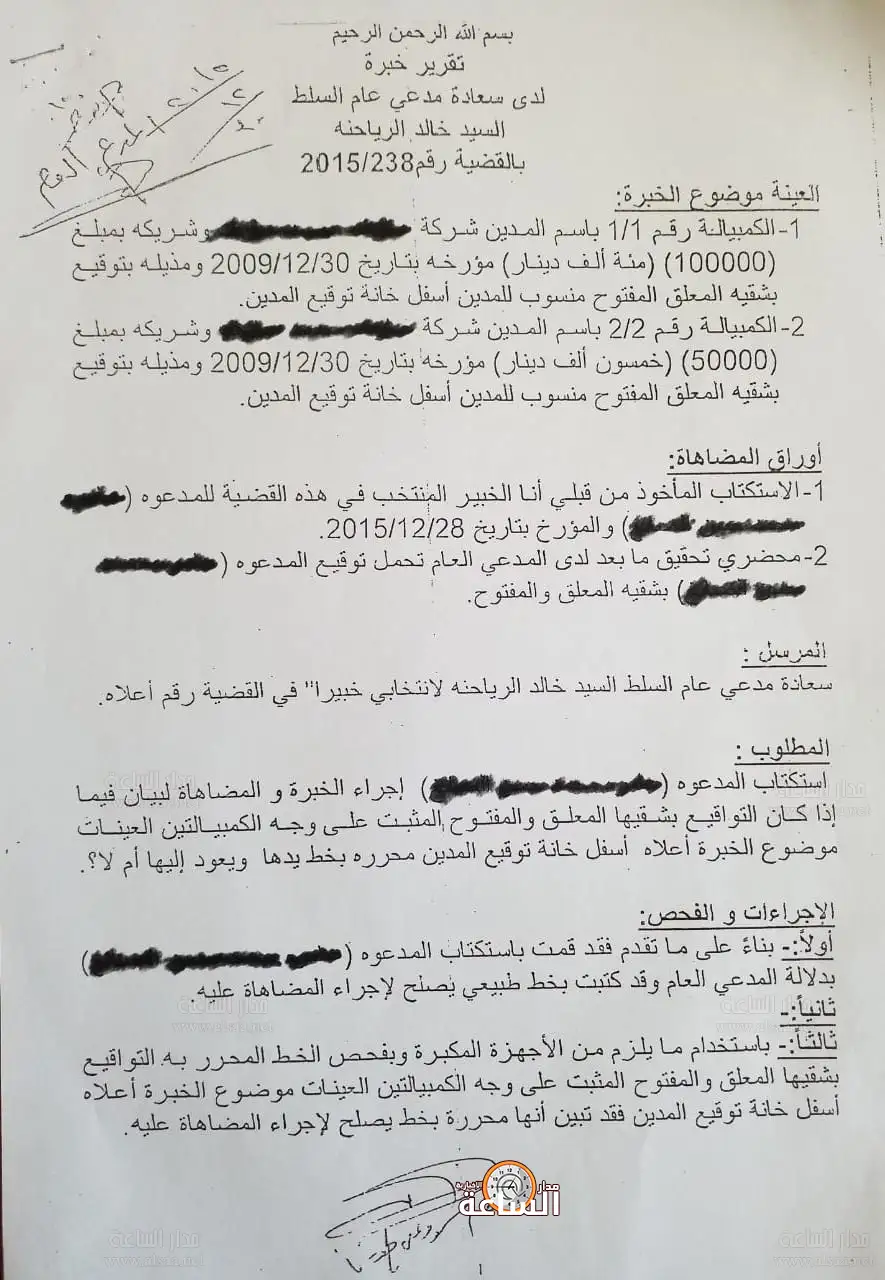 بسم الله الرحمن الرحيم
تقرير خبرة
لدى سعادة مدعي عام السلط
السيد خالد الرياحنه
بالقضية رقم 2015/238
العينة موضوع الخبرة:
1-الكمبيالة رقم 1/1 باسم المدين شركة وشريكه بمبلغ
(100000) (مئة ألف دينار) مؤرخه بتاريخ 2009/12/30 ومذيله بتوقيع
بشقيه المعلق المفتوح منسوب للمدين أسفل خانة توقيع المدين.
2-الكمبيالة رقم 2/2 باسم المدين شركة وشريكه بمبلغ
(50000) (خمسون ألف دينار) مؤرخه بتاريخ 2009/12/30 ومذيله بتوقيع
بشقيه المعلق المفتوح منسوب للمدين أسفل خانة توقيع المدين.
أوراق المضاهاة:
1-الاستكتاب المأخوذ من قبلي أنا الخبير المنتخب في هذه القضية للمدعوه (
) والمؤرخ بتاريخ 2015/12/28.
2-محضري تحقيق ما بعد لدى المدعي العام تحمل توقيع المدعوه (
) بشقيه المعلق والمفتوح.
المرسل :
سعادة مدعي عام السلط السيد خالد الرياحنه لانتخابي خبيرا" في القضية رقم أعلاه.
المطلوب :
استكتاب المدعوه ( ) إجراء الخبرة و المضاهاة لبيان فيما
إذا كان التواقيع بشقيها المعلق والمفتوح المثبت على وجه الكمبيالتين العينات
موضوع الخبرة أعلاه أسفل خانة توقيع المدين محرره بخط يدها ويعود إليها أم لا؟.
الإجراءات و الفحص:
أولاً:- بناءً على ما تقدم فقد قمت باستكتاب المدعوه ( )
بدلالة المدعي العام وقد كتبت بخط طبيعي يصلح لإجراء المضاهاة عليه.
ثانياً:-
ثالثاً:- باستخدام ما يلزم من الأجهزة المكبرة وبفحص الخط المحرر به التواقيع
بشقيها المعلق والمفتوح المثبت على وجه الكمبيالتين العينات موضوع الخبرة أعلاه
أسفل خانة توقيع المدين فقد تبين أنها محررة بخط يصلح لإجراء المضاهاة عليه.
مدار الساعة الإخبارية
1
مدار الساعة
www.alsaa.net